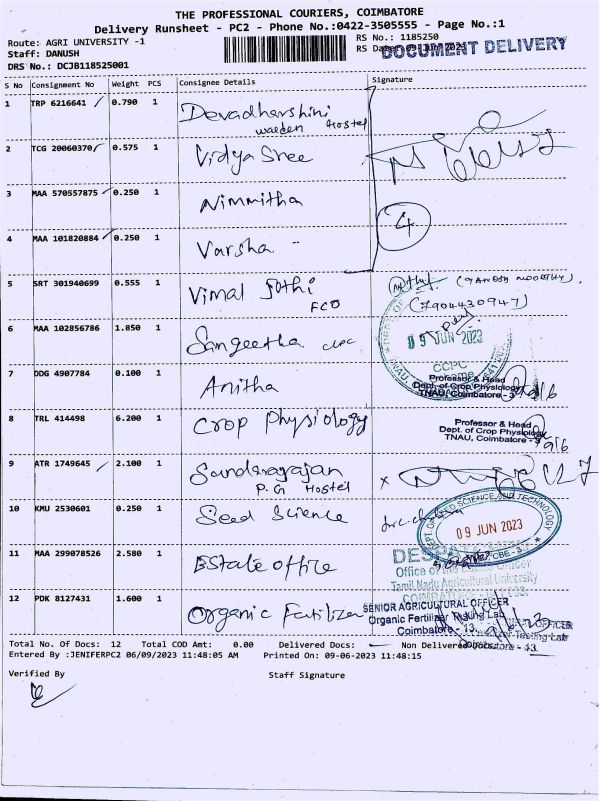 THE PROFESSIONAL COURIERS, COIMBATORE
Delivery Runsheet - PC2 - Phone No.:0422-3505555 - Page No.:1
Route: AGRI UNIVERSITY -1
RS No.: 1185250
Staff: DANUSH
RS Date: 09 JUN 2023
DOCUMENT DELIVERY
DRS No.: DCJB118525001
S No Consignment No Weight PCS Consignee Details Signature
1 TRP 6216641 0.790 1 Devadharshini
warden Hostel
2 TCG 20060370 0.575 1 Vidya Sree
3 MAA 570557875 0.250 1 Nimmitha
4
4 MAA 101820884 0.250 1 Varsha -
5 SRT 301940699 0.555 1 Vimal Jothi (GANESH MOORTHY),
FCO (7904430947)
09 JUN 2023
6 MAA 102856786 1.850 1 Sangeetha
CCPC
TNAU
7 DDG 4907784 0.100 1 Anitha
Professor & Head
Dept. of Crop Physiology
TNAU, Coimbatore - 3
9/6
8 TRL 414498 6.200 1 Crop Physiology
Professor & Head
Dept. of Crop Physiology
TNAU, Coimbatore - 3
9/6
9 ATR 1749645 2.100 1 Sundararajan
P.G Hostel
x
10 KMU 2530601 0.250 1 Seed Science
DEPT OF SEED SCIENCE AND TECHNOLOGY
09 JUN 2023
CBE - 3
11 MAA 299078526 2.580 1 Estate office
Office of the Officer
Tamil Nadu Agricultural University
COIMBATORE
12 PDK 8127431 1.600 1 Organic Fertilizer
SENIOR AGRICULTURAL OFFICER
Organic Fertilizer Testing Lab
Coimbatore - 13.
Total No. Of Docs: 12 Total COD Amt: 0.00 Delivered Docs: Non Delivered Docs:
Coimbatore - 13.
Entered By :JENIFERPC2 06/09/2023 11:48:05 AM Printed On: 09-06-2023 11:48:15
Verified By Staff Signature